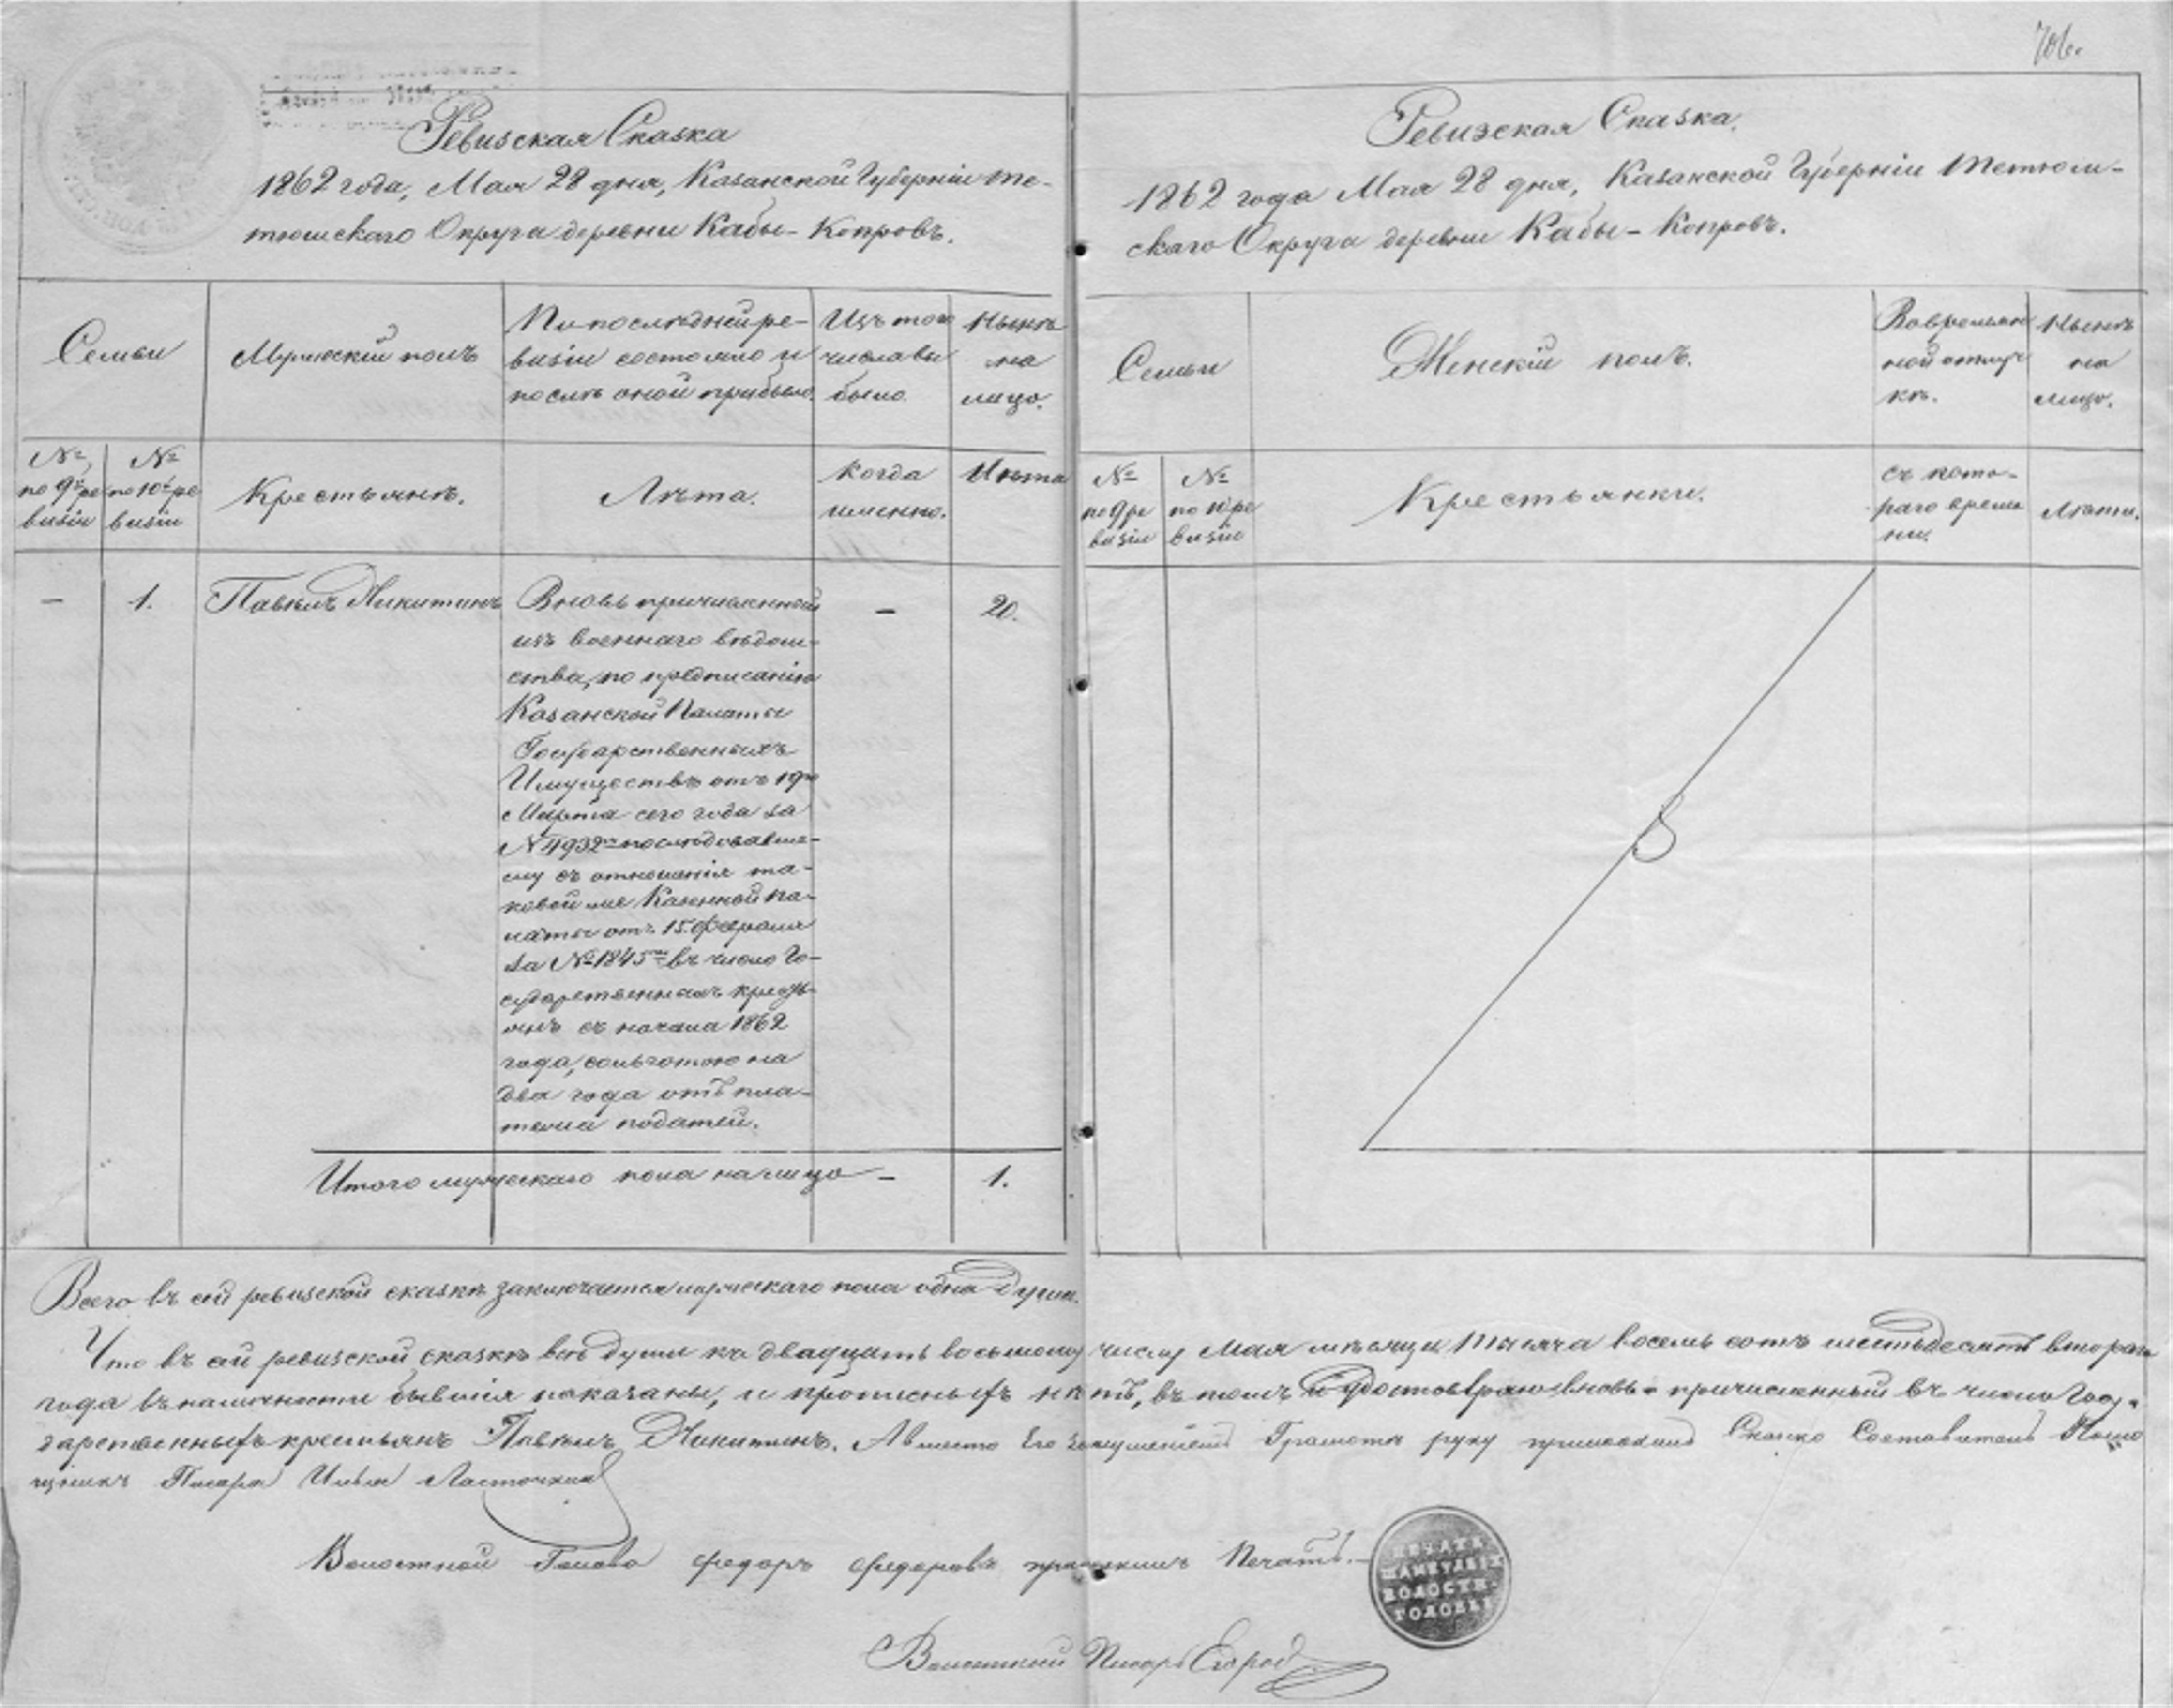 706.
Ревизская Сказка
1862 года, Мая 28 дня, Казанской Губерніи Те-
тюшскаго Округа деревни Кабы-Копровъ.
Семьи
Мужескій полъ
По последней ре-
визіи состояло и
послѣ оной прибыло.
Изъ того
числа вы
было.
Нынѣ
на
лицо.
№
по 9й ре
визіи
№
по 10й ре
визіи
Крестьянъ.
Лѣта.
Когда
именно.
Лѣта
—
1.
Павелъ Никитинъ
Вновь причисленный
изъ военнаго вѣдом-
ства, по предписанію
Казанской Палаты
Государственныхъ
Имуществъ отъ 19го
Марта сего года за
№ 4932м последовавше-
му съ отношенія та-
ковой же Казенной па-
латы отъ 15 февраля
за № 1845м въ число Го-
сударственныхъ кресть-
янъ съ начала 1862
года, сольготою на
два года отъ пла-
тежа податей.
—
20.
Итого мужескаго пола на лицо —
1.
Ревизская Сказка.
1862 года Мая 28 дня, Казанской Губерніи Тетюш-
скаго Округа деревни Кабы-Копровъ.
Семьи
Женскій полъ.
Вовремян
ной отлуч
кѣ.
Нынѣ
на
лицо.
№
по 9 ре
визіи
№
по 10 ре
визіи
Крестьянки.
съ кото-
раго време
ни.
Лѣта.
Всего въ сей ревизской сказкѣ заключается мужескаго пола одна душа.
Что въ сей ревизской сказкѣ всѣ души къ двадцать восьмому числу Мая мѣсяца Тысяча восемь сотъ шестьдесятъ втораго
года въ наличности бывшія показаны, и прописныхъ нѣтъ, въ томъ и удостовѣряю вновь причисленный въ число Госу-
дарственныхъ крестьянъ Павелъ Никитинъ. А вместо Его Грамотѣ руку приложилъ Сказко Составитель Помо
щникъ Писаря Илья Ласточкинъ
Волостной Голова Федоръ Федоровъ приложилъ Печать.
ПЕЧАТЬ
ВОЛОСТН.
ГОЛОВЫ
Волостной Писарь